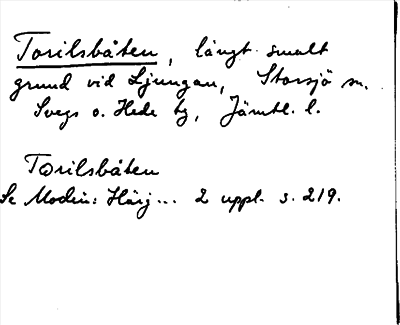 Torilsbåten, långt smalt
grund vid Ljungan, Storsjö sn.
Svegs o. Hede tg, Jämtl. l.
Torilsbåten
Se Modin: Härj... 2 uppl. s. 219.